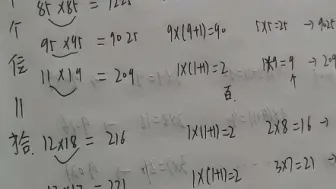 85×85=1225
个 95×95=9025 9×(9+1)=90 5×5=25→9025
位 11×19=209 1×(1+1)=2 1×9=9→209
百
||
拾 12×18=216 1×(1+1)=2 2×8=16→
1×(1+1)=2 3×7=21→